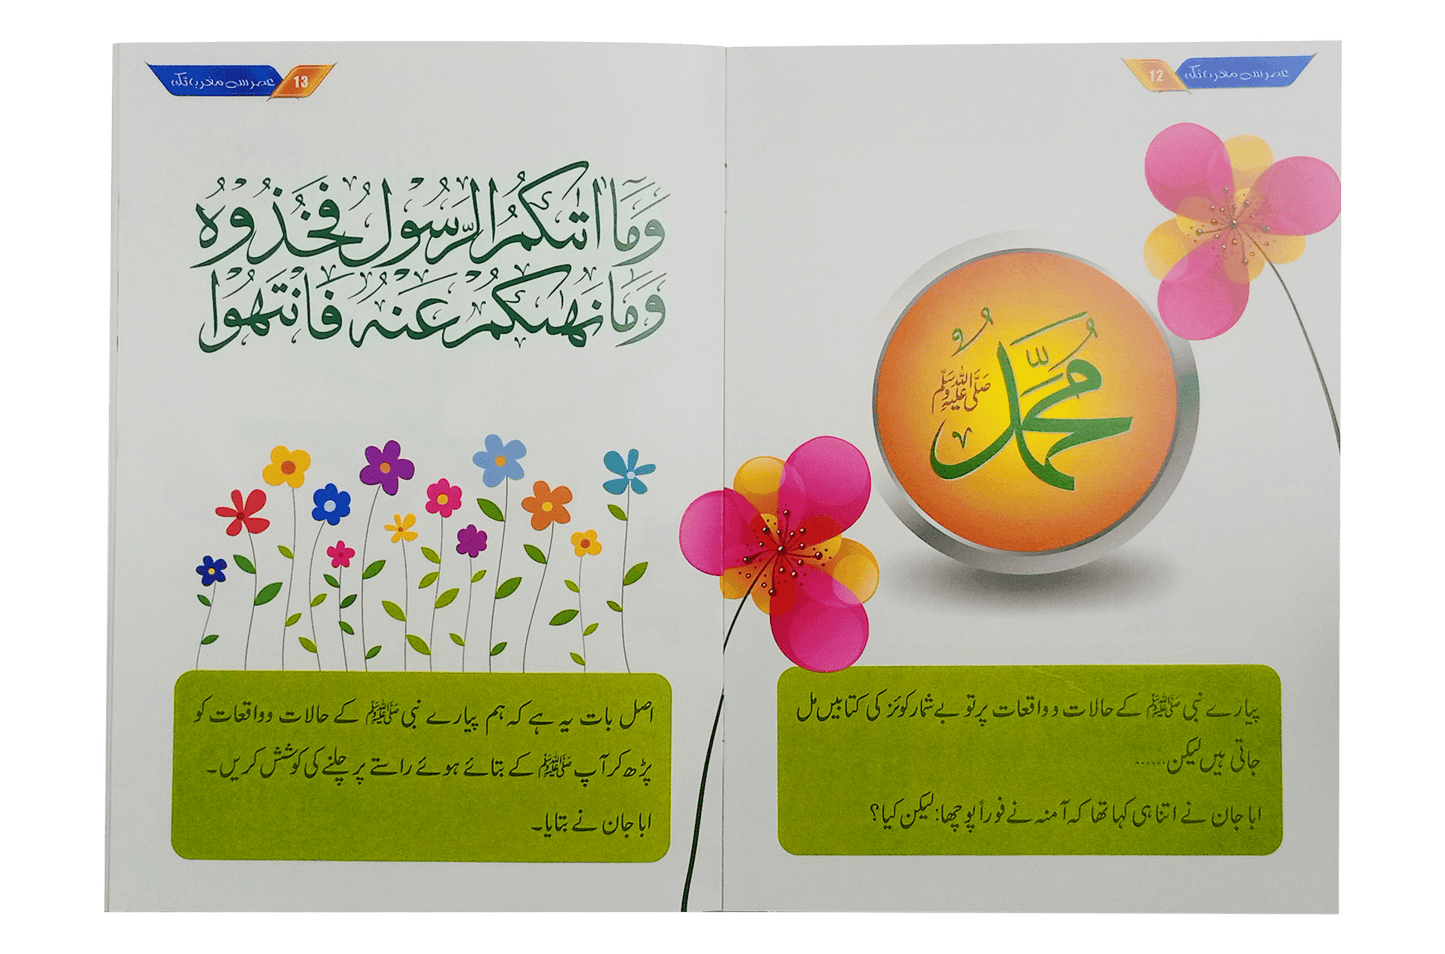 12 عصر سے مغرب تک
مُحَمَّدٌ
صَلَّى اللّٰهُ عَلَيْهِ وَسَلَّم
پیارے نبی ﷺ کے حالات و واقعات پر تو بے شمار کوئز کی کتابیں مل
جاتی ہیں لیکن......
ابا جان نے اتنا ہی کہا تھا کہ آمنہ نے فوراً پوچھا: لیکن کیا؟
13 عصر سے مغرب تک
وَمَا اٰتٰىكُمُ الرَّسُوْلُ فَخُذُوْهُ
وَمَا نَهٰىكُمْ عَنْهُ فَانْتَهُوْا
اصل بات یہ ہے کہ ہم پیارے نبی ﷺ کے حالات و واقعات کو
پڑھ کر آپ ﷺ کے بتائے ہوئے راستے پر چلنے کی کوشش کریں۔
ابا جان نے بتایا۔